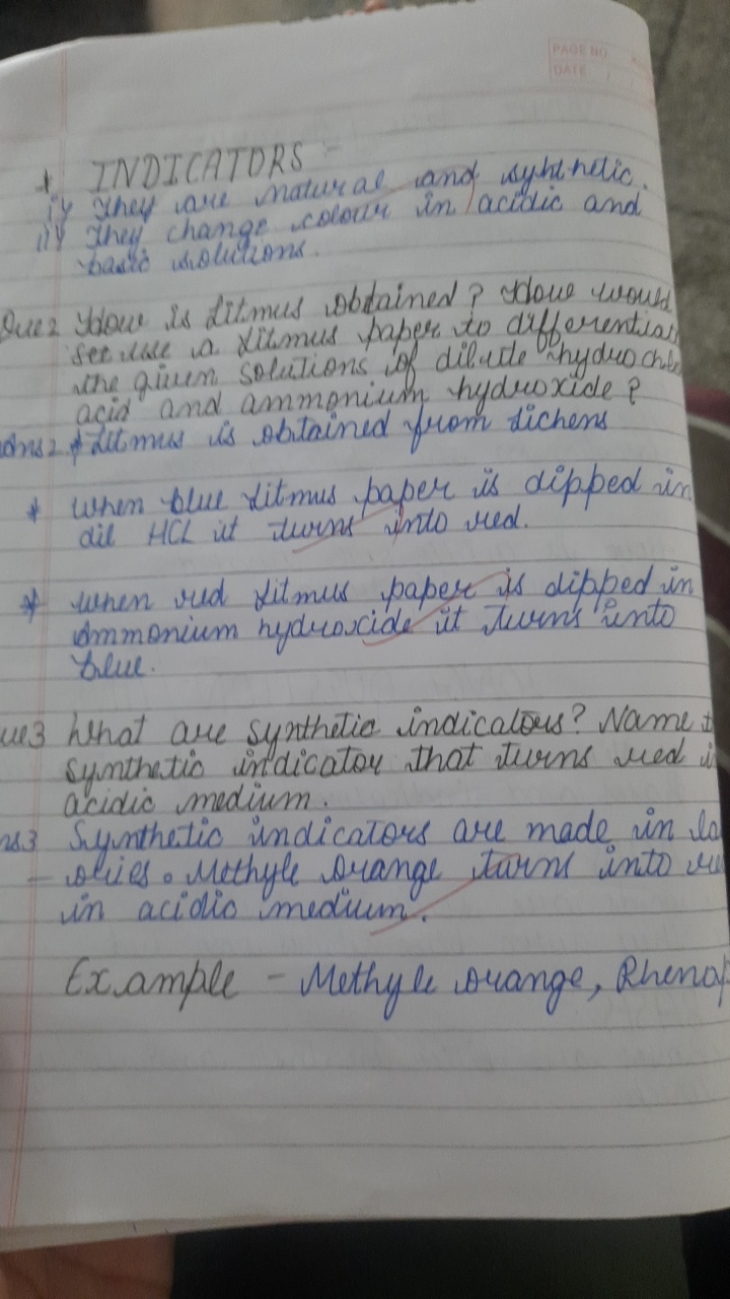 PAGE NO
DATE
* INDICATORS -
i) They are natural and syhthetic.
ii) They change colour in acidic and
basic solutions.
Que2 How is litmus obtained? How would
use a litmus paper to differentia
the given solutions of dilute hydrochl
acid and ammonium hydroxide?
Ans2 * Litmus is obtained from lichens
* When blue litmus paper is dipped in
dil HCL it turns into red.
* When red litmus paper is dipped in
Ammonium hydroxide it turns into
blue.
ue3 What are synthetic indicators? Name
synthetic indicator that turns red i
acidic medium.
ns3 Synthetic indicators are made in la
- ories. Methyle orange turns into re
in acidic medium.
Example - Methyle orange, Phenop